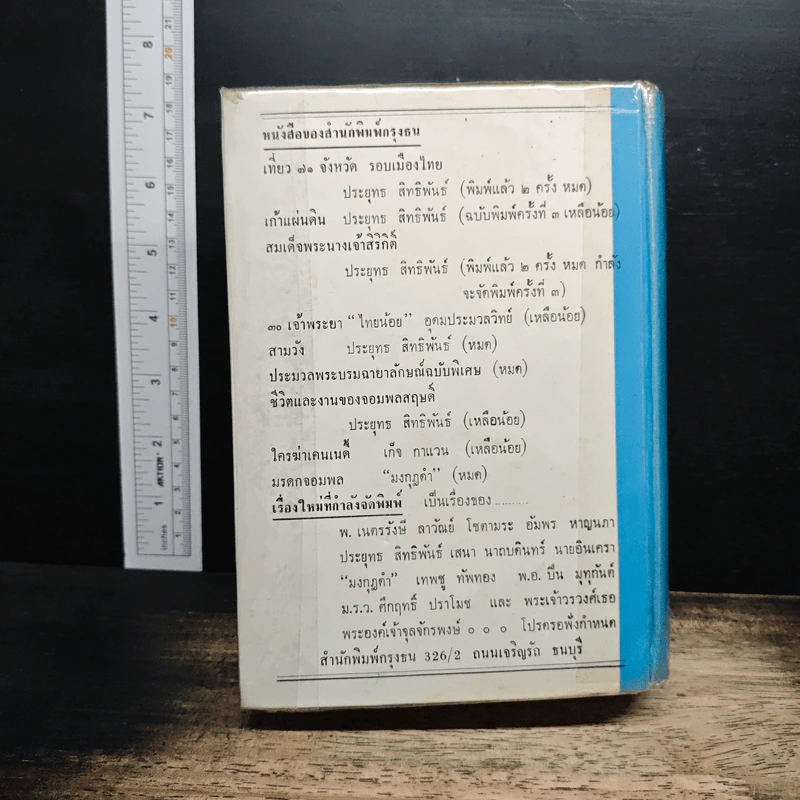 หนังสือของสำนักพิมพ์กรุงธน
เที่ยว ๗๑ จังหวัด รอบเมืองไทย
ประยุทธ สิทธิพันธ์ (พิมพ์แล้ว ๒ ครั้ง หมด)
เก้าแผ่นดิน ประยุทธ สิทธิพันธ์ (ฉบับพิมพ์ครั้งที่ ๓ เหลือน้อย)
สมเด็จพระนางเจ้าสิริกิติ์
ประยุทธ สิทธิพันธ์ (พิมพ์แล้ว ๒ ครั้ง หมด กำลัง
จะจัดพิมพ์ครั้งที่ ๓)
๓๐ เจ้าพระยา "ไทยน้อย" อุดมประมวลวิทย์ (เหลือน้อย)
สามวัง ประยุทธ สิทธิพันธ์ (หมด)
ประมวลพระบรมฉายาลักษณ์ฉบับพิเศษ (หมด)
ชีวิตและงานของจอมพลสฤษดิ์
ประยุทธ สิทธิพันธ์ (เหลือน้อย)
ใครฆ่าเคนเนดี้ เก็จ กาแวน (เหลือน้อย)
มรดกจอมพล "มงกุฎดำ" (หมด)
เรื่องใหม่ที่กำลังจัดพิมพ์ เป็นเรื่องของ..........
พ. เนตรรังษี ลาวัณย์ โชตามระ อัมพร หาญนภา
ประยุทธ สิทธิพันธ์ เสนา นาถบดินทร์ นายอินเครา
"มงกุฎดำ" เทพชู ทัพทอง พ.อ. ปิ่น มุทุกันต์
ม.ร.ว. คึกฤทธิ์ ปราโมช และ พระเจ้าวรวงศ์เธอ
พระองค์เจ้าจุลจักรพงษ์ ๐ ๐ ๐ โปรดรอฟังกำหนด
สำนักพิมพ์กรุงธน 326/2 ถนนเจริญรัถ ธนบุรี
8 7 6 5 4 3 2 1
inches